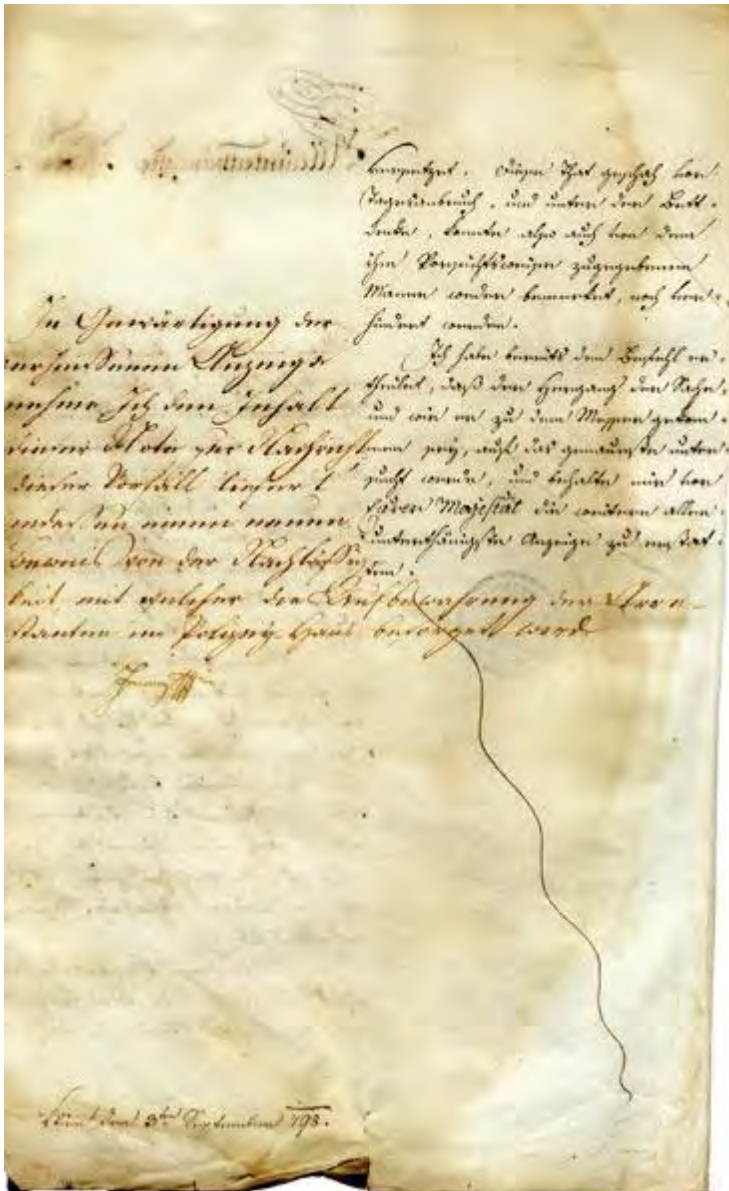 versetzet. Diese That geschah vor
Tagesanbruch, und unter der Bett-
decke, konnte also auch von dem
ihm Vorsichtsweise zugegebenen
Manne weder bemerket, noch ver-
hindert werden.
Ich habe bereits den Befehl er-
theilet, daß der Hergang der Sache,
und wie er zu dem Messer gekom-
men sey, auf das genaueste unter-
sucht werde, und behalte mir vor
Euerer Majestät die weitere aller-
unterthänigste Anzeige zu erstat-
ten.
In Gewärtigung der
verheissenen Anzeige
nehme Ich den Inhalt
dieser Nota zur Nachricht
dieser Vorfall liefert
indessen einen neuen
Beweis von der Nachlässig
keit mit welcher die Aufbewahrung der Arre-
stanten im Polizey Haus besorget wird
Franz
Wien den 3ten September 798.